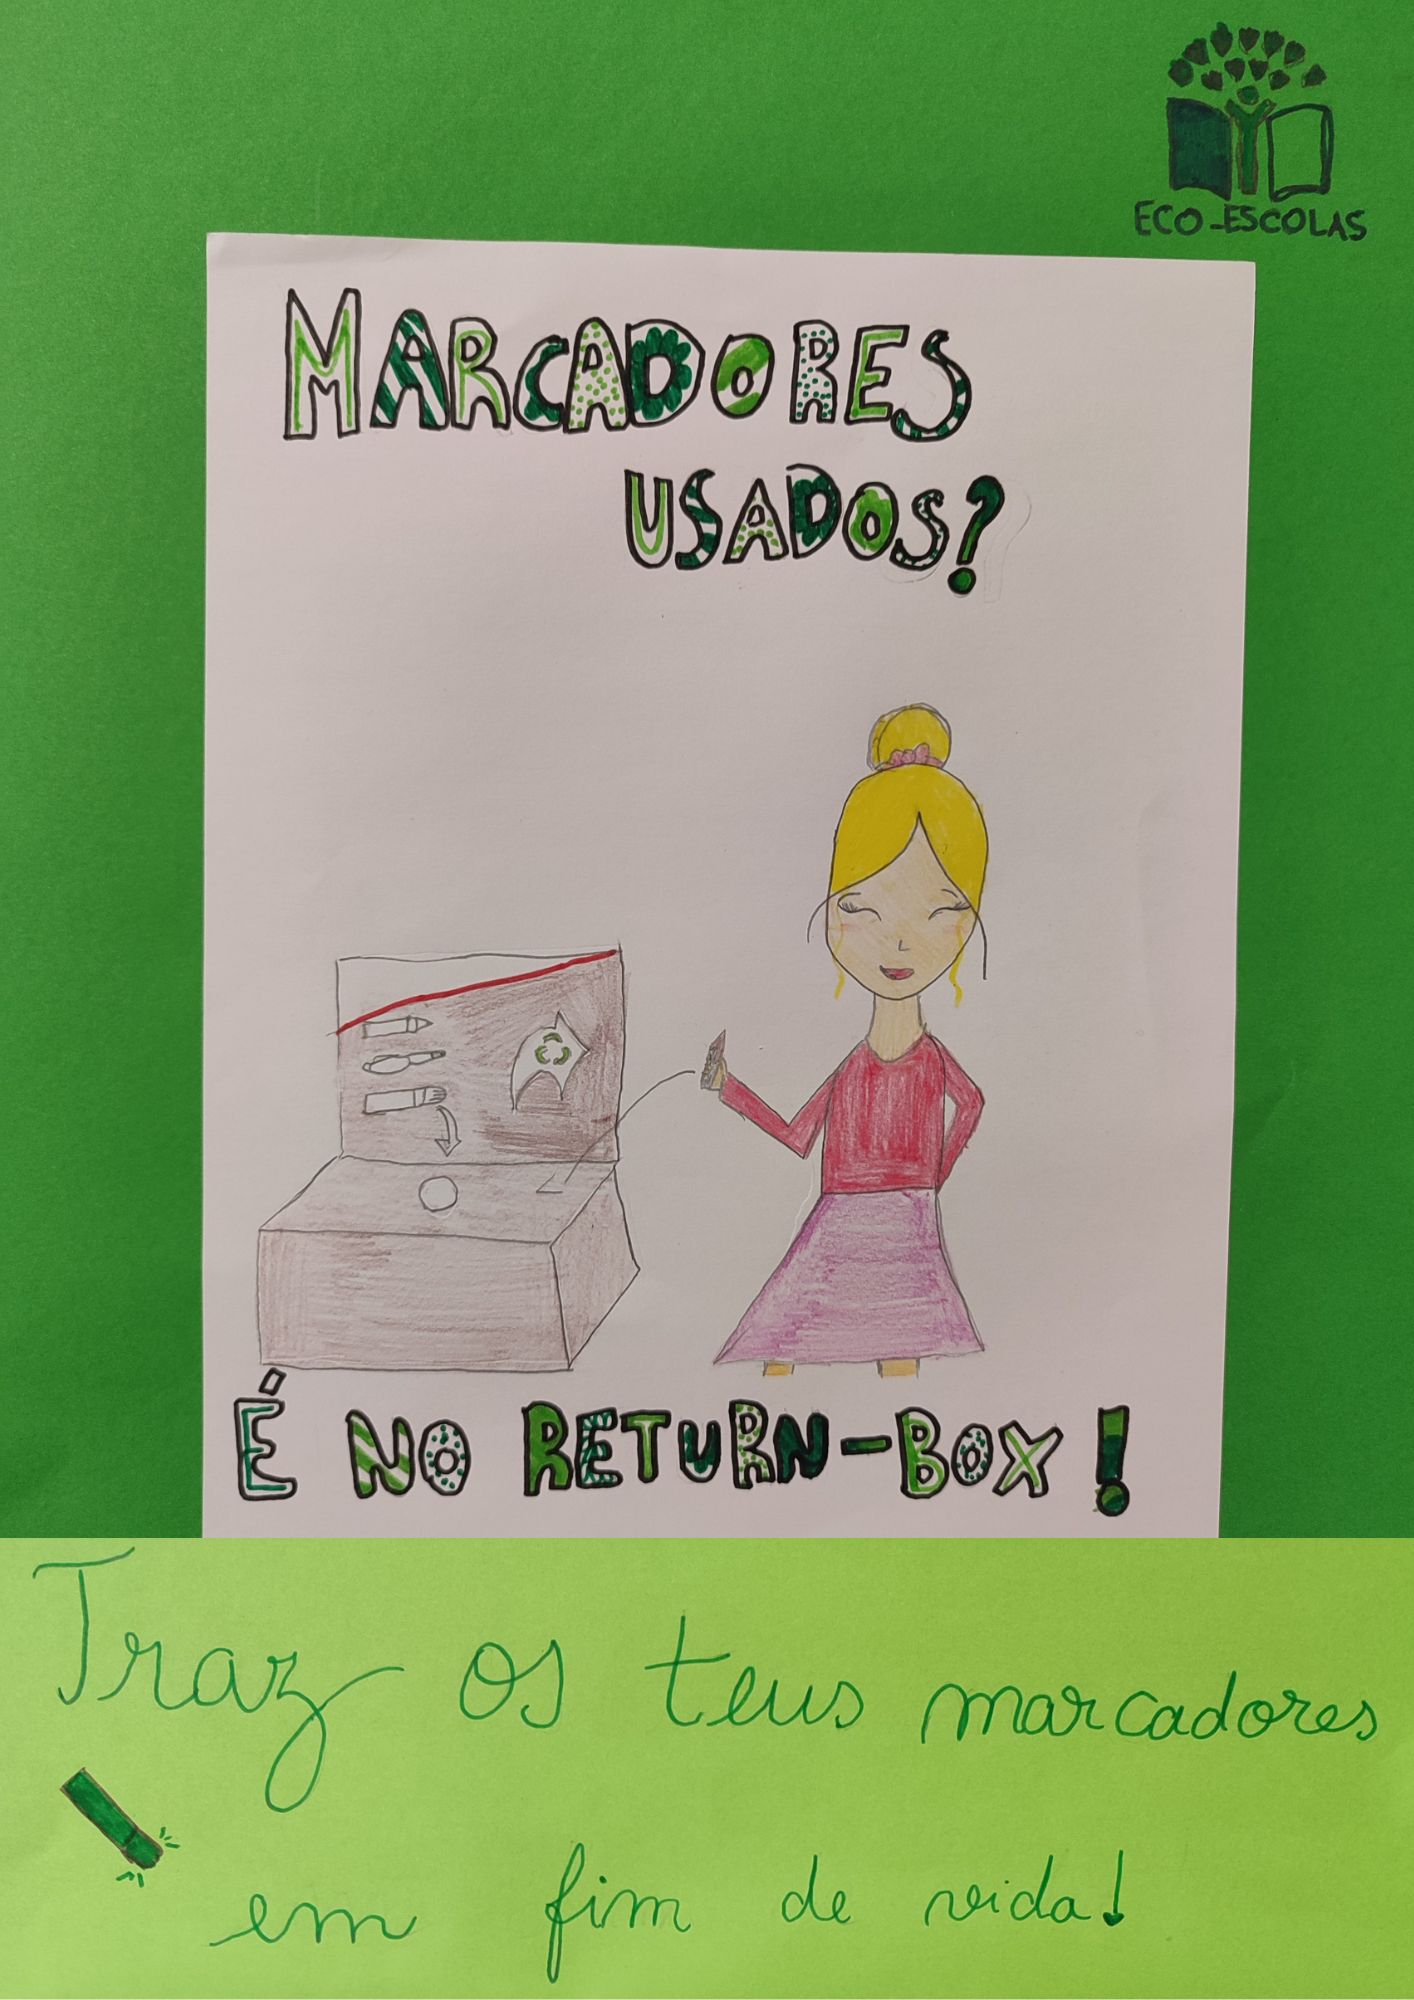 ECO-ESCOLAS
MARCADORES
USADOS?
É NO RETURN-BOX!
Traz os teus marcadores
em fim de vida!